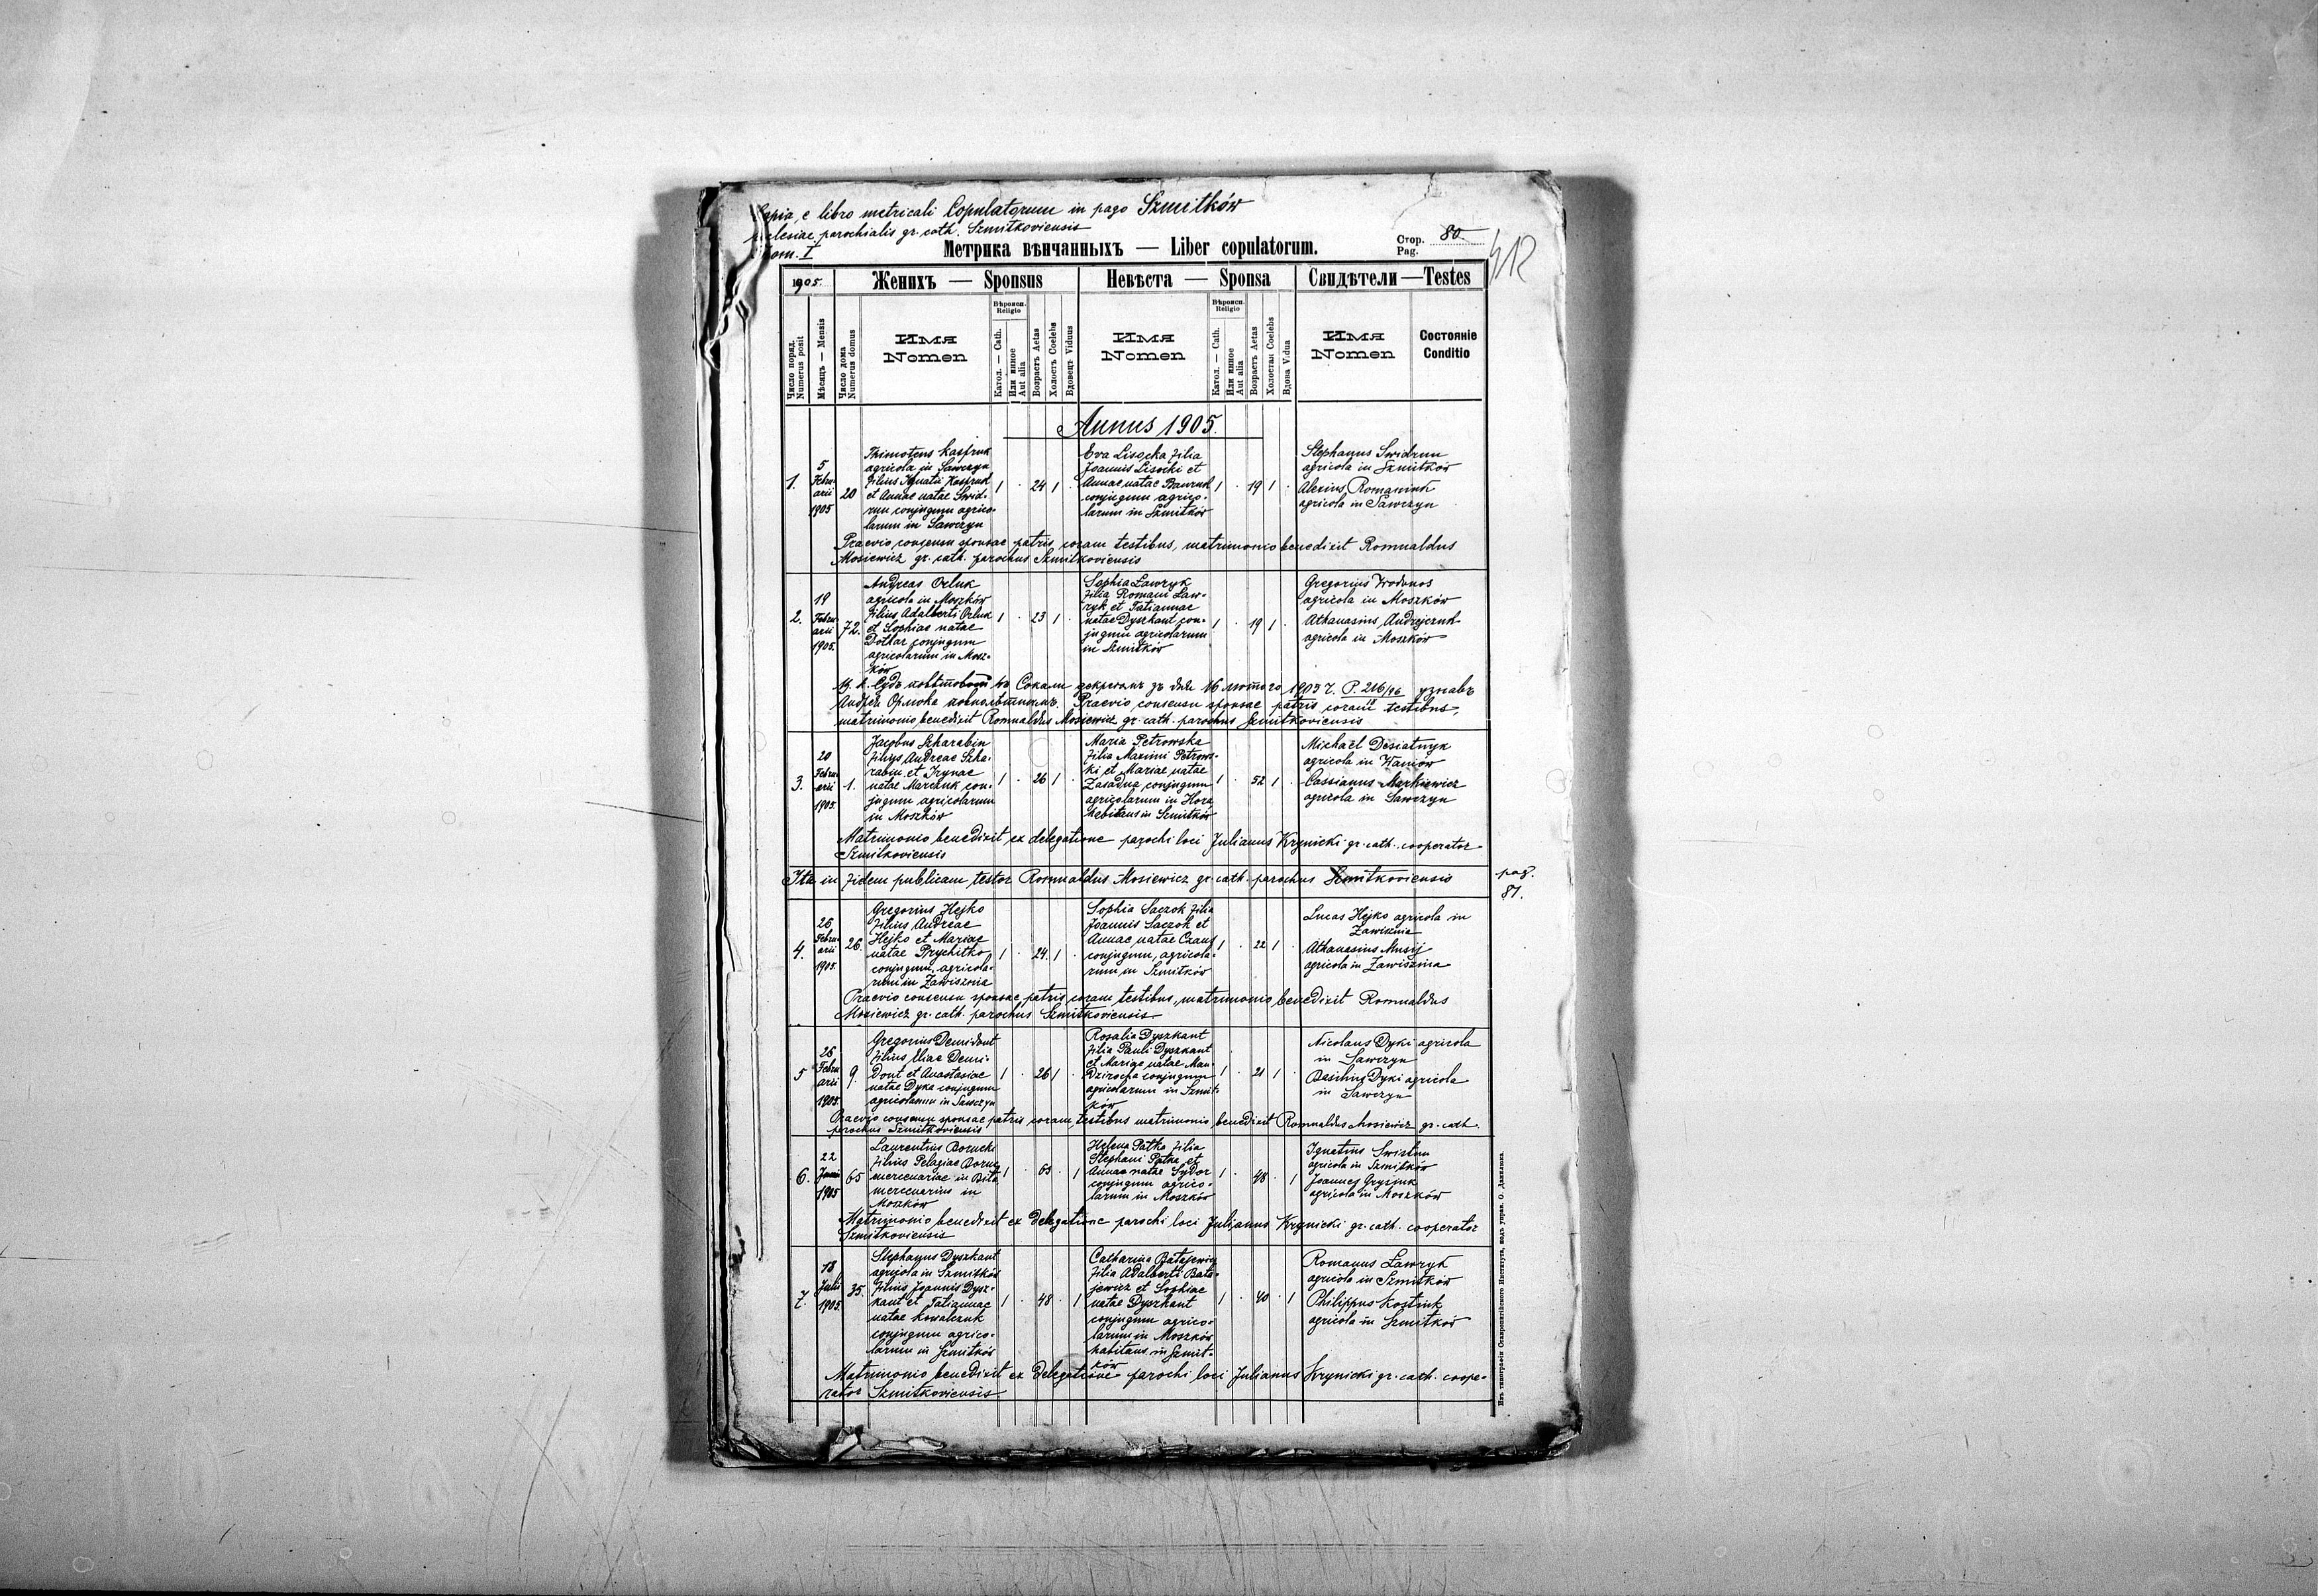 Copia e libro metricali Copulatorum in pago Szmitków
ecclesiae parochialis gr. cath. Szmitkoviensis
Tom. I
Метрика вѣнчанныхъ — Liber copulatorum.
Стор. Pag. 80
412
1905.
Женихъ — Sponsus
Невѣста — Sponsa
Свидѣтели — Testes
Число поряд. Numerus posit
Мѣсяцъ — Mensis
Число дома Numerus domus
Имя Nomen
Вѣроисп. Religio
Катол. — Cath.
Или инное Aut alia
Возрастъ Aetas
Холостъ Coelebs
Вдовецъ Viduus
Имя Nomen
Вѣроисп. Religio
Катол. — Cath.
Или инное Aut alia
Возрастъ Aetas
Холостая Coelebs
Вдова Vidua
Имя Nomen
Состоянie Conditio
Annus 1905.
1.
5 Februarii 1905
20
Thimoteus Kaspruk
agricola in Sawczyn
filius Ignatii Kaspruk
et Annae natae Swid-
run conjugum agrico-
larum in Sawczyn
1 · 24 1 ·
Eva Lisocka filia
Joannis Lisocki et
Annae natae
conjugum agrico-
larum in Szmitków
1 · 19 1 ·
Stephanus Swidrun
agricola in Szmitków
Alexius Romaniuk
agricola in Sawczyn
Praevio consensu sponsae patris coram testibus, matrimonio benedixit Romualdus
Mosiewicz gr. cath. parochus Szmitkoviensis
2.
19 Februarii 1905.
72.
Andreas Orluk
agricola in Moszków
filius Adalberti Orluk
et Sophiae natae
conjugum
agricolarum in Mosz-
ków
1 · 23 1 ·
Sophia Ławryk
filia Romani Ław-
ryk et Tatiannae
natae Dyszkant con-
jugum agricolarum
in Szmitków
1 · 19 1 ·
Gregorius Wodonos
agricola in Moszków
Athanasius Andrejczuk
agricola in Moszków
Ц. к. Судъ повѣтовый въ Сокали декретомъ зъ дня 16 лютого 1905 ч. P. 216/96 узнавъ
Андрѣя Орлюка Praevio consensu sponsae patris coram testibus,
matrimonio benedixit Romualdus Mosiewicz gr. cath. parochus Szmitkoviensis
3.
20 Februarii 1905.
1.
Jacobus Szharabin
filius Andreae Szha-
rabin et Irynae
natae Marczuk con-
jugum agricolarum
in Moszków
1 · 26 1 ·
Maria Petrowska
filia Maximi Petrows-
ki et Mariae natae
Zasadna conjugum
agricolarum in Hora
habitans in Szmitków
1 · 52 1 ·
Michaël Desiatnyk
agricola in Waniów
Cassianus Markiewicz
agricola in Sawczyn
Matrimonio benedixit ex delegatione parochi loci Julianus Krynicki gr. cath. cooperator
Szmitkoviensis
Ita in fidem publicam testor Romualdus Mosiewicz gr. cath. parochus Szmitkoviensis
pag. 81.
4.
26 Februarii 1905.
26.
Gregorius Hejko
filius Andreae
Hejko et Mariae
natae Prychitko
conjugum, agricola-
rum in Zawisznia
1 · 24. 1 ·
Sophia Saczok filia
Joannis Saczok et
Annae natae
conjugum, agricola-
rum in Szmitków
1 · 22 1 ·
Lucas Hejko agricola in
Zawisznia
Athanasius Musij
agricola in Zawisznia
Praevio consensu sponsae patris coram testibus, matrimonio benedixit Romualdus
Mosiewicz gr. cath. parochus Szmitkoviensis
5
26 Februarii 1905.
9.
Gregorius Demidont
filius Iliae Demi-
dont et Anastasiae
natae Dyka conjugum
agricolarum in Sawczyn
1 · 26 1 ·
Rosalia Dyszkant
filia Pauli Dyszkant
et Mariae natae Man-
dzirocha conjugum
agricolarum in Szmit-
ków
1 · 21 1 ·
Nicolaus Dyki agricola
in Sawczyn
Basilius Dyki agricola
in Sawczyn
Praevio consensu sponsae patris coram testibus matrimonio benedixit Romualdus Mosiewicz gr. cath.
parochus Szmitkoviensis
6.
22 Junii 1905
65
Laurentius Borucki
filius Pelagiae
mercenariae in
mercenarius in
Moszków
1 · 63 · 1
Helena Patka filia
Stephani Patka et
Annae natae Sydor
conjugum agrico-
larum in Moszków
1 · 48 · 1
Ignatius Swistun
agricola in Szmitków
Joannes
agricola in Moszków
Matrimonio benedixit ex delegatione parochi loci Julianus Krynicki gr. cath. cooperator
Szmitkoviensis
7.
18 Julii 1905.
35.
Stephanus Dyszkant
agricola in Szmitków
filius Joannis Dysz-
kant et Tatiannae
natae Kowalczuk
conjugum agrico-
larum in Szmitków
1 · 48 · 1
Catharina Batajewicz
filia Adalberti Bata-
jewicz et Sophiae
natae Dyszkant
conjugum agrico-
larum in Moszków
habitans in Szmit-
ków
1 · 40 · 1
Romanus Ławryk
agricola in Szmitków
Philippus Kostiuk
agricola in Szmitków
Matrimonio benedixit ex delegatione parochi loci Julianus Krynicki gr. cath. coope-
rator Szmitkoviensis
Изъ типографіи Ставропигійского Института, подъ управ. О. Данилюка.